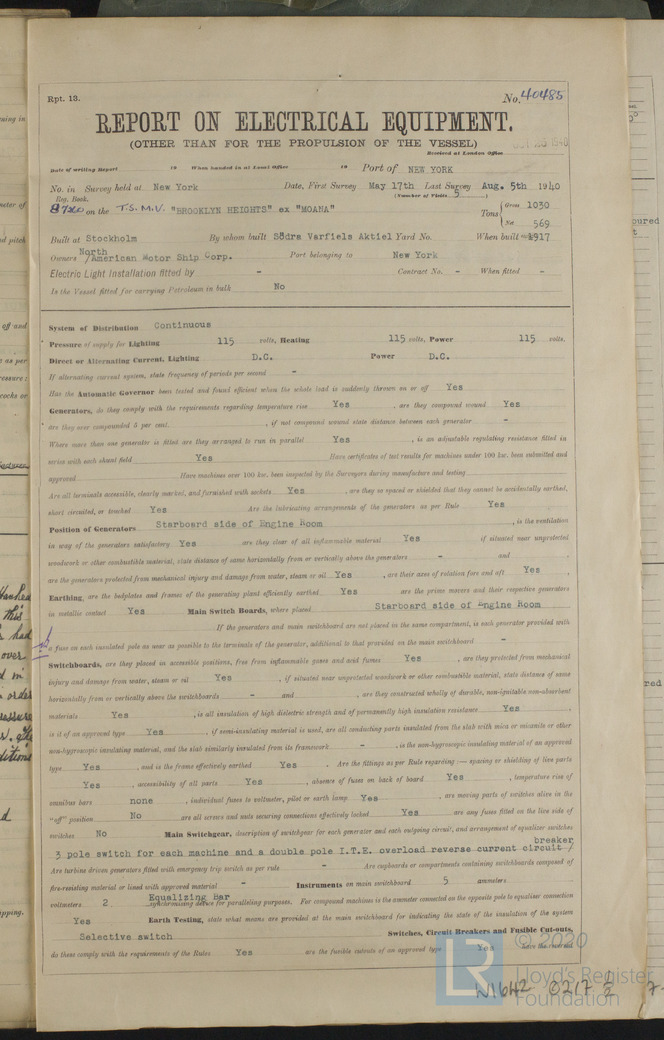 Rpt. 13.
No. 40485
REPORT ON ELECTRICAL EQUIPMENT.
(OTHER THAN FOR THE PROPULSION OF THE VESSEL)
Received at London Office
Date of writing Report 19 When handed in at Local Office 19 Port of NEW YORK
No. in Survey held at New York Date, First Survey May 17th Last Survey Aug. 5th 1940
Reg. Book. (Number of Visits 5
on the T.S.M.V. "BROOKLYN HEIGHTS" ex "MOANA" Tons Gross 1030
Net 569
Built at Stockholm By whom built Södra Varfiels Aktiel Yard No. When built 1917
Owners North American Motor Ship Corp. Port belonging to New York
Electric Light Installation fitted by - Contract No. - When fitted -
Is the Vessel fitted for carrying Petroleum in bulk No
System of Distribution Continuous
Pressure of supply for Lighting 115 volts, Heating 115 volts, Power 115 volts.
Direct or Alternating Current, Lighting D.C. Power D.C.
If alternating current system, state frequency of periods per second -
Has the Automatic Governor been tested and found efficient when the whole load is suddenly thrown on or off Yes
Generators, do they comply with the requirements regarding temperature rise Yes , are they compound wound Yes
are they over compounded 5 per cent. , if not compound wound state distance between each generator -
Where more than one generator is fitted are they arranged to run in parallel Yes , is an adjustable regulating resistance fitted in
series with each shunt field Yes Have certificates of test results for machines under 100 kw. been submitted and
approved Have machines over 100 kw. been inspected by the Surveyors during manufacture and testing
Are all terminals accessible, clearly marked, and furnished with sockets Yes , are they so spaced or shielded that they cannot be accidentally earthed,
short circuited, or touched Yes Are the lubricating arrangements of the generators as per Rule Yes
Position of Generators Starboard side of Engine Room , is the ventilation
in way of the generators satisfactory Yes are they clear of all inflammable material Yes if situated near unprotected
woodwork or other combustible material, state distance of same horizontally from or vertically above the generators - and ,
are the generators protected from mechanical injury and damage from water, steam or oil Yes , are their axes of rotation fore and aft Yes ,
Earthing, are the bedplates and frames of the generating plant efficiently earthed Yes are the prime movers and their respective generators
in metallic contact Yes Main Switch Boards, where placed Starboard side of Engine Room
If the generators and main switchboard are not placed in the same compartment, is each generator provided with
a fuse on each insulated pole as near as possible to the terminals of the generator, additional to that provided on the main switchboard -
Switchboards, are they placed in accessible positions, free from inflammable gases and acid fumes Yes , are they protected from mechanical
injury and damage from water, steam or oil Yes , if situated near unprotected woodwork or other combustible material, state distance of same
horizontally from or vertically above the switchboards - and , are they constructed wholly of durable, non-ignitable non-absorbent
materials Yes , is all insulation of high dielectric strength and of permanently high insulation resistance Yes ,
is it of an approved type Yes , if semi-insulating material is used, are all conducting parts insulated from the slab with mica or micanite or other
non-hygroscopic insulating material, and the slab similarly insulated from its framework - , is the non-hygroscopic insulating material of an approved
type Yes , and is the frame effectively earthed Yes . Are the fittings as per Rule regarding :— spacing or shielding of live parts
Yes , accessibility of all parts Yes , absence of fuses on back of board Yes , temperature rise of
omnibus bars none , individual fuses to voltmeter, pilot or earth lamp Yes , are moving parts of switches alive in the
"off" position No are all screws and nuts securing connections effectively locked Yes are any fuses fitted on the live side of
switches No Main Switchgear, description of switchgear for each generator and each outgoing circuit, and arrangement of equalizer switches
3 pole switch for each machine and a double pole I.T.E. overload reverse current circuit / breaker
Are turbine driven generators fitted with emergency trip switch as per rule - Are cupboards or compartments containing switchboards composed of
fire-resisting material or lined with approved material - Instruments on main switchboard 5 ammeters
voltmeters 2 Equalizing Bar synchronising device for paralleling purposes. For compound machines is the ammeter connected on the opposite pole to equaliser connection
Yes Earth Testing, state what means are provided at the main switchboard for indicating the state of the insulation of the system
Selective switch Switches, Circuit Breakers and Fusible Cut-outs,
do these comply with the requirements of the Rules Yes are the fusible cutouts of an approved type Yes have the reversed
© 2020
Lloyd's Register
Foundation
LR
W1642-0217 1/2